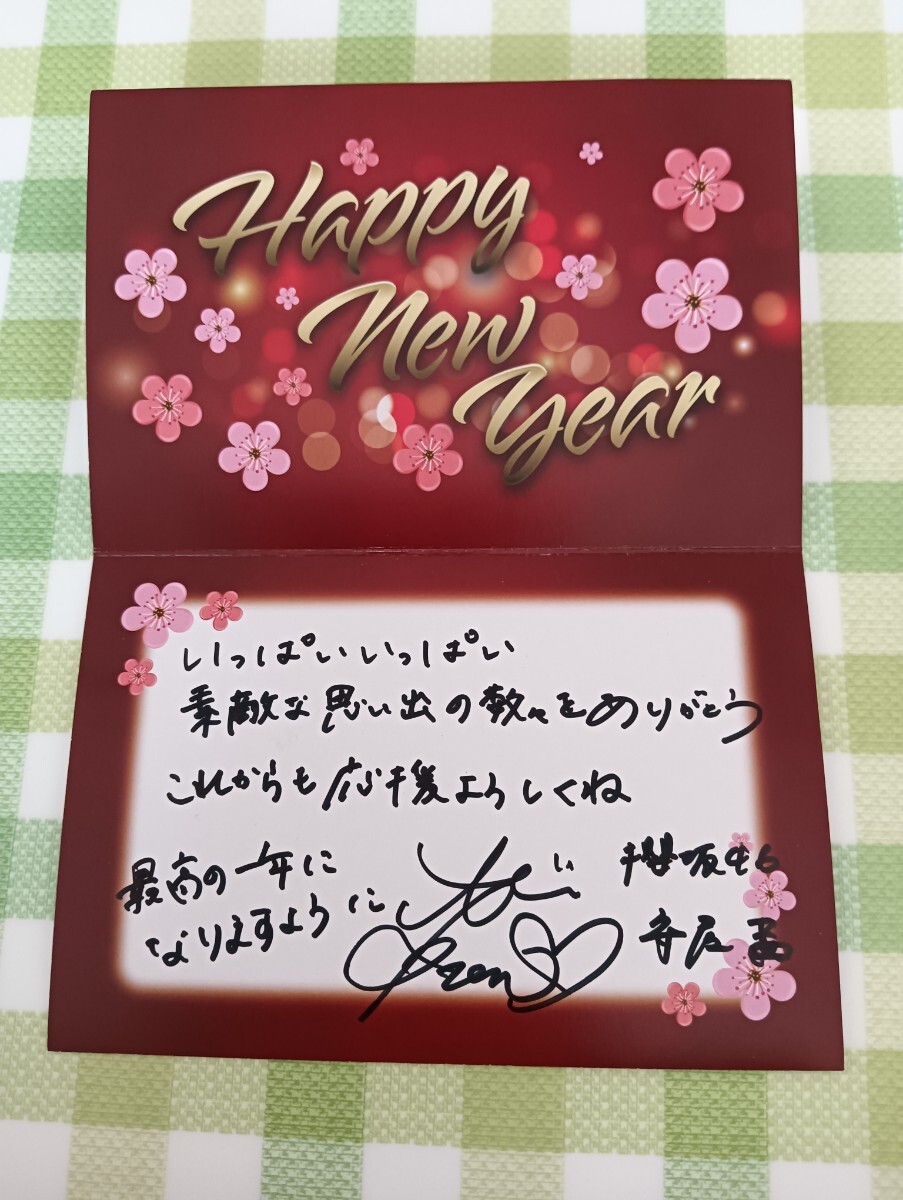 Happy
New
Year
いっぱいいっぱい
素敵な思い出の数々をありがとう
これからも応援よろしくね
最高の一年に
なりますように
櫻坂46
守屋